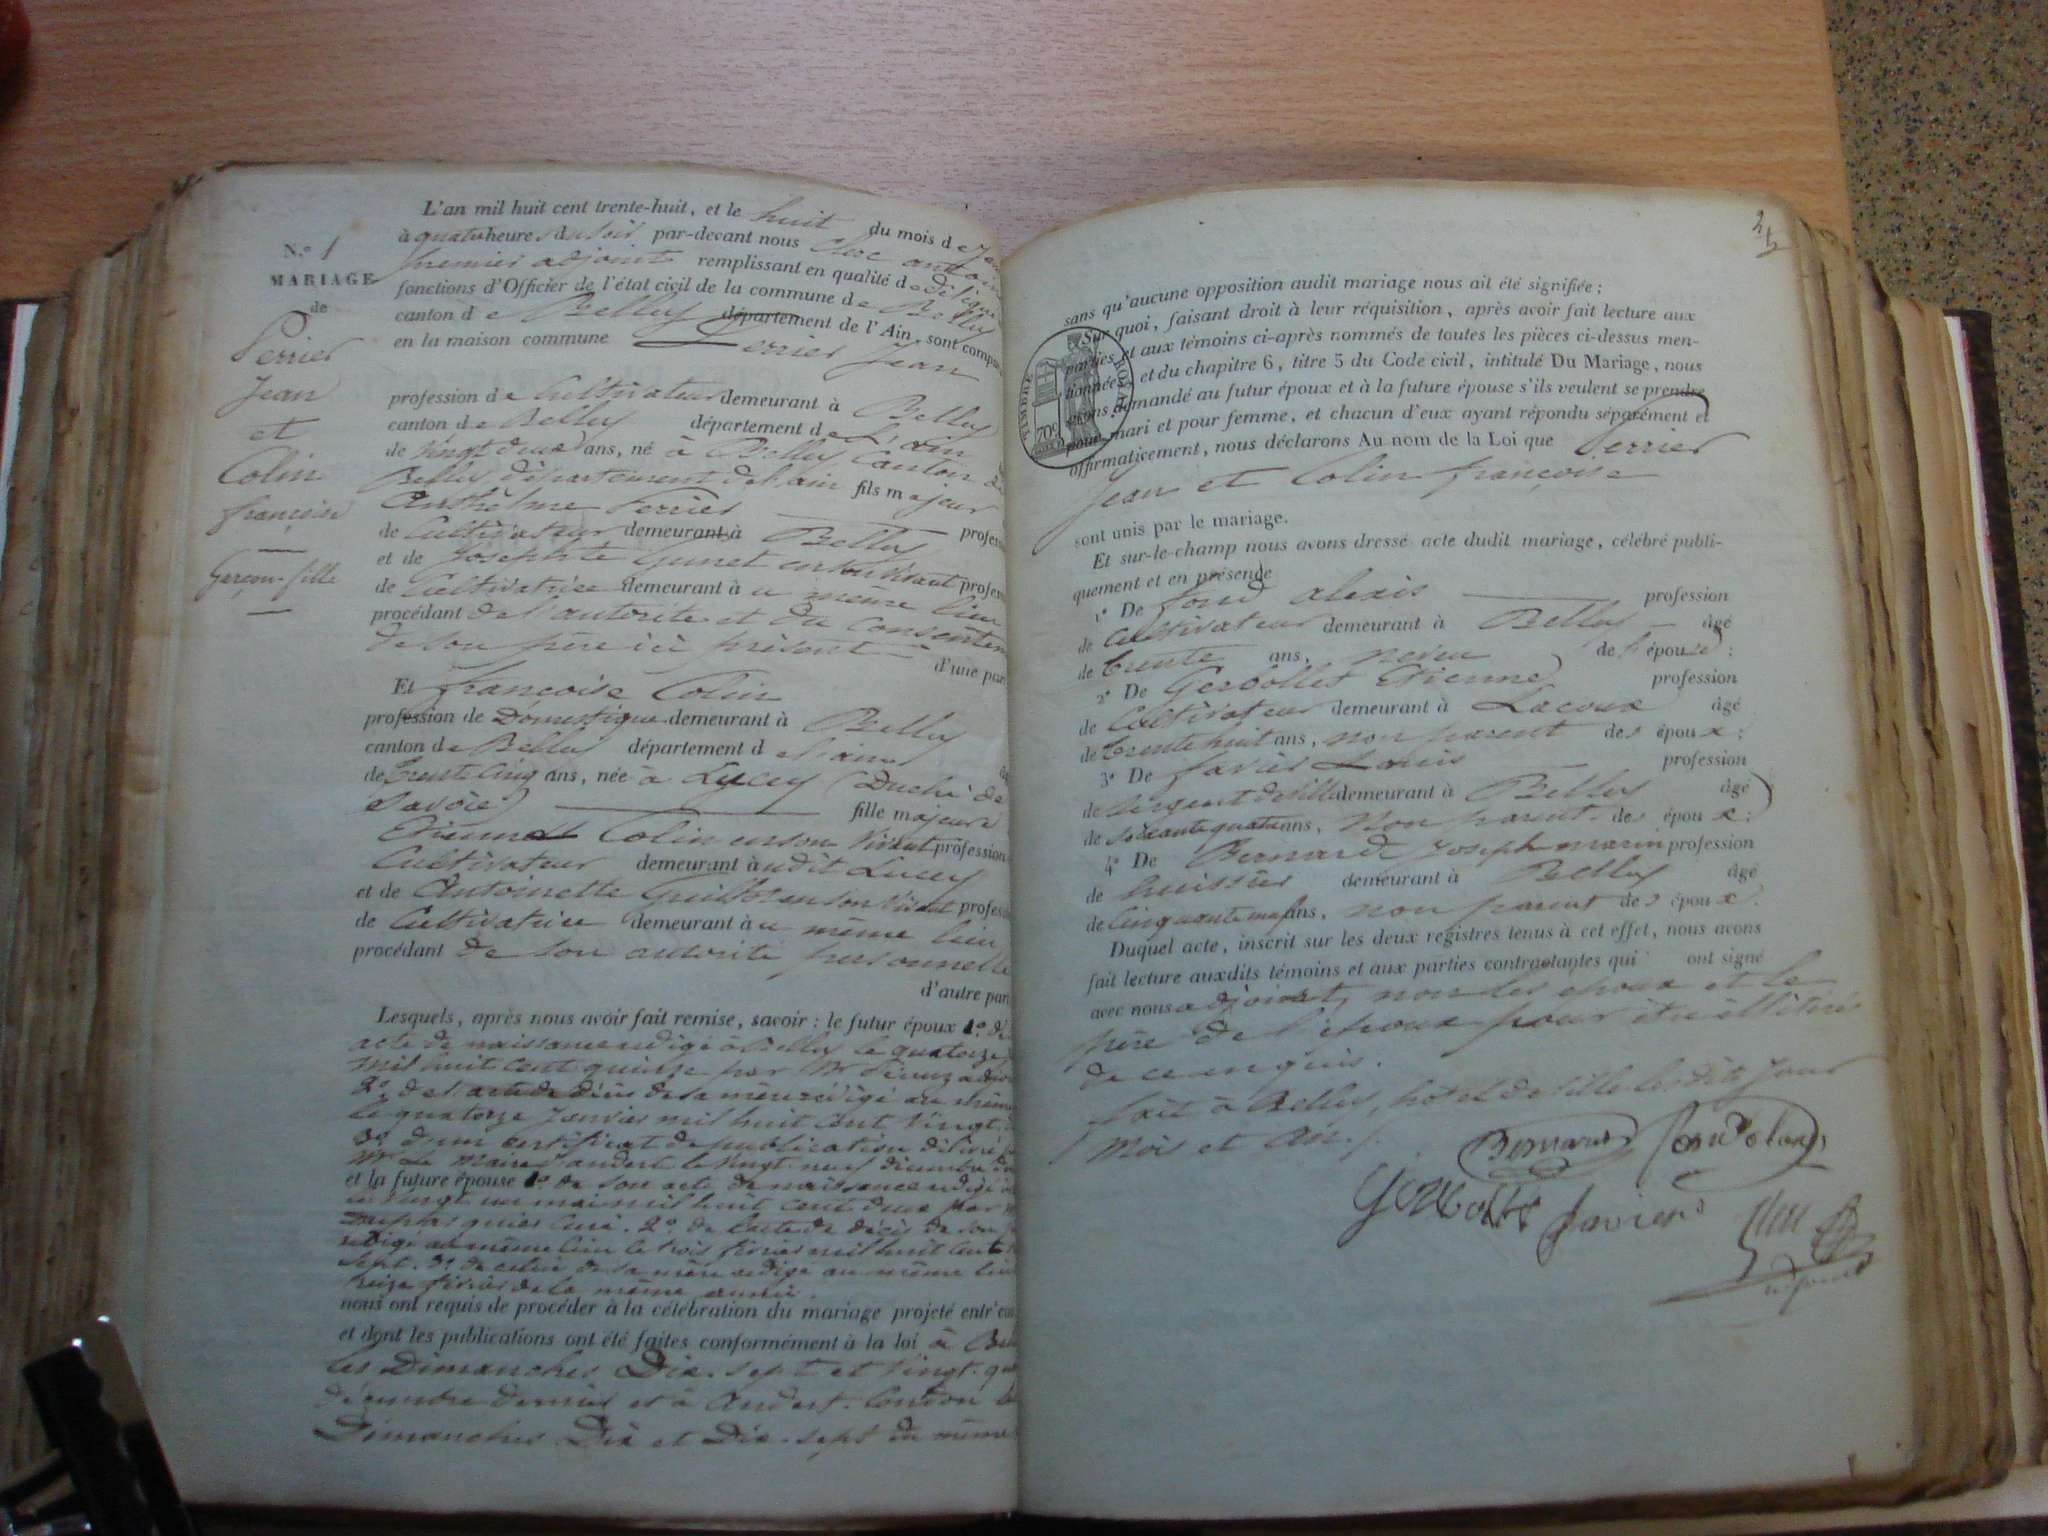 N.º 1
MARIAGE
de
Perrier
Jean
et
Colin
françoise
Garçon-fille
L'an mil huit cent trente-huit, et le huit du mois de
à quatre heures du soir par-devant nous
premier adjoint remplissant en qualité de délégué
fonctions d'Officier de l'état civil de la commune de Belley
canton de Belley département de l'Ain sont compa
en la maison commune Perrier Jean
profession de Cultivateur demeurant à Belley
canton de Belley département de L'ain
de vingt deux ans, né à Belley Canton de
Belley département de l'ain fils majeur
Anthelme Perrier profess
de Cultivateur demeurant à Belley
et de Josephte Gunet en son vivant profess
de Cultivatrice demeurant au même lieu
procédant de l'autorité et du consentem
de son père ici présent d'une part
Et françoise Colin
profession de Domestique demeurant à Belley
canton de Belley département de l'ain
de trente cinq ans, née à Lucey (Duché de
Savoie) fille majeure
Etienne Colin en son vivant profession
Cultivateur demeurant audit Lucey
et de Antoinette Guillot en son vivant profess
de Cultivatrice demeurant au même lieu
procédant de son autorité personnelle
d'autre part
Lesquels, après nous avoir fait remise, savoir : le futur époux 1º de
acte de naissance rédigé à Belley le quatorze
mil huit cent quinze par Mr
2º de l'acte de décès de sa mère rédigé au même
le quatorze janvier mil huit cent vingt
3º d'un certificat de publication délivré
Mr le Maire d'andert le vingt neuf décembre
et la future épouse 1º de son acte de naissance rédigé
le vingt un mai mil huit cent deux par
curé. 2º de l'acte de décès de son
rédigé au même lieu le trois février mil huit cent
sept. 3º de celui de sa mère rédigé au même lieu
treize février de la même année.
nous ont requis de procéder à la célébration du mariage projeté entr'eux
et dont les publications ont été faites conformément à la loi à Bell
les Dimanches Dix-sept et vingt-qua
décembre dernier et à Andert-Condon
Dimanches Dix et Dix-sept du même
sans qu'aucune opposition audit mariage nous ait été signifiée ;
Sur quoi, faisant droit à leur réquisition, après avoir fait lecture aux
parties et aux témoins ci-après nommés de toutes les pièces ci-dessus men-
tionnées et du chapitre 6, titre 5 du Code civil, intitulé Du Mariage, nous
avons demandé au futur époux et à la future épouse s'ils veulent se prendre
pour mari et pour femme, et chacun d'eux ayant répondu séparément et
affirmativement, nous déclarons Au nom de la Loi que Perrier
Jean et Colin françoise
sont unis par le mariage.
Et sur-le-champ nous avons dressé acte dudit mariage, célébré publi-
quement et en présence
1º De fond alexis profession
de Cultivateur demeurant à Belley âgé
de trente ans, neveu de l'épouse ;
2º De Gerbollet Etienne profession
de Cultivateur demeurant à Lacoux âgé
de trente huit ans, non parent des époux ;
3º De favier Louis profession
de sergent de ville demeurant à Belley âgé
de soixante quatre ans, non parent des époux ;
4º De Bernard Joseph marin profession
de huissier demeurant à Belley âgé
de cinquante neuf ans, non parent des époux.
Duquel acte, inscrit sur les deux registres tenus à cet effet, nous avons
fait lecture auxdits témoins et aux parties contractantes qui ont signé
avec nous adjoint, non les époux et le
père de l'époux pour être illitéré
de ce enquis.
fait à Belley, hôtel de ville lesdits jour
Mois et an.
Bernard
favier
adjoint
TIMBRE ROYAL
70c